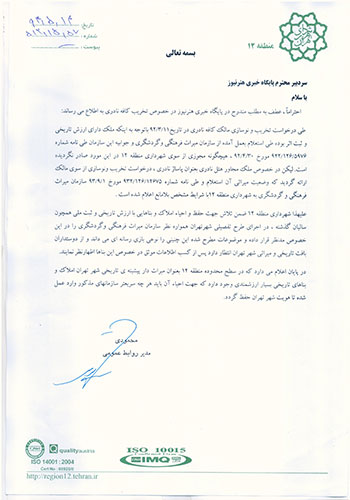 تاریخ
شماره
پیوست
منطقه ۱۲
بسمه تعالی
سردبیر محترم پایگاه خبری هنرنیوز
با سلام
احتراماً، عطف به مطلب مندرج در پایگاه خبری هنرنیوز در خصوص تخریب کافه نادری به اطلاع می رساند:
طی درخواست تخریب و نوسازی مالک کافه نادری در تاریخ ۹۲/۳/۱۱ باتوجه به اینکه ملک دارای ارزش تاریخی
و ثبت اثر بوده طی استعلام بعمل آمده از سازمان میراث فرهنگی وگردشگری و جوابیه این سازمان طی نامه شماره
۹۲۲/۱۲۶/۵۹۷۶ مورخ ۹۲/۴/۳۰ ، هیچگونه مجوزی از سوی شهرداری منطقه ۱۲ در این مورد صادر نگردیده
است. لیکن در خصوص ملک مجاور هتل نادری بعنوان پاساژ نادری ، درخواست تخریب ونوسازی از سوی مالک
ارائه گردید که وضعیت میراثی آن استعلام و طی نامه شماره ۹۳۲/۱۲۶/۱۲۶۷۵ مورخ ۹۳/۹/۱ سازمان میراث
فرهنگی و گردشگری به شهرداری منطقه ۱۲ با شرایط مشخص بلامانع اعلام شده است.
علیهذا شهرداری منطقه ۱۲ ضمن تلاش جهت حفظ و احیاء املاک و بناهایی با ارزش تاریخی و ثبت ملی همچون
سالیان گذشته ، در اجرای طرح تفصیلی شهر تهران همواره نظر سازمان میراث فرهنگی وگردشگری را در این
خصوص مدنظر قرار داده و موضوعات مطرح شده این چنینی را نوعی بازی رسانه ای می داند و از دوستداران
بافت تاریخی و میراثی شهر تهران انتظار دارد پس از کسب اطلاعات موثق در خصوص این بناها اظهارنظر نمایند.
در پایان اعلام می دارد که در سطح محدوده منطقه ۱۲ بعنوان میراث دار پیشینه ی تاریخی شهر تهران املاک و
بناهای تاریخی بسیار ارزشمندی وجود دارد که جهت احیاء آن باید هر چه سریعتر سازمانهای مذکور وارد عمل
شده تا هویت شهر تهران حفظ گردد.
محمودی
مدیر روابط عمومی
qualityaustria
ISO 14001 : 2004
ISO 10015
IMQ
http://region12.tehran.ir